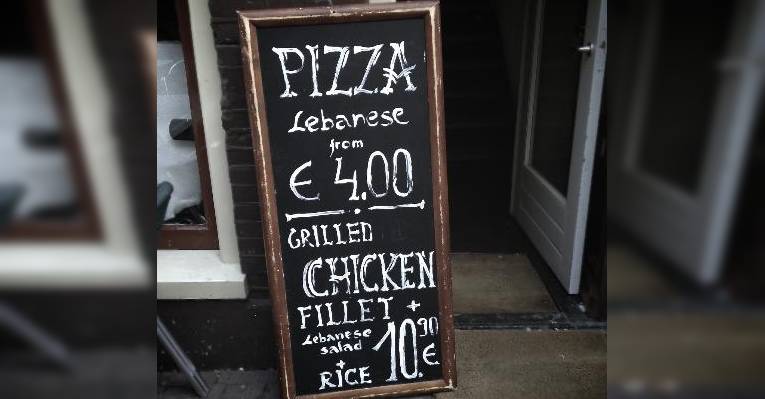 PIZZA
Lebanese
from
€ 4.00
GRILLED
CHICKEN
FILLET +
Lebanese
salad
+
RICE
10.90
€